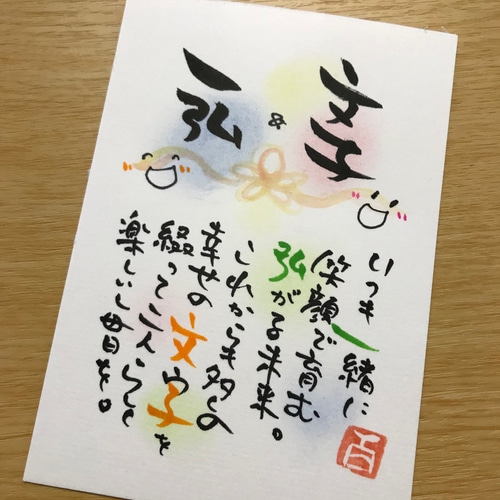 文子
&
一弘
いつも一緒に
笑顔で育む
弘がる未来。
これからも多くの
幸せの文字を
綴って二人らしく
楽しい毎日を。
百